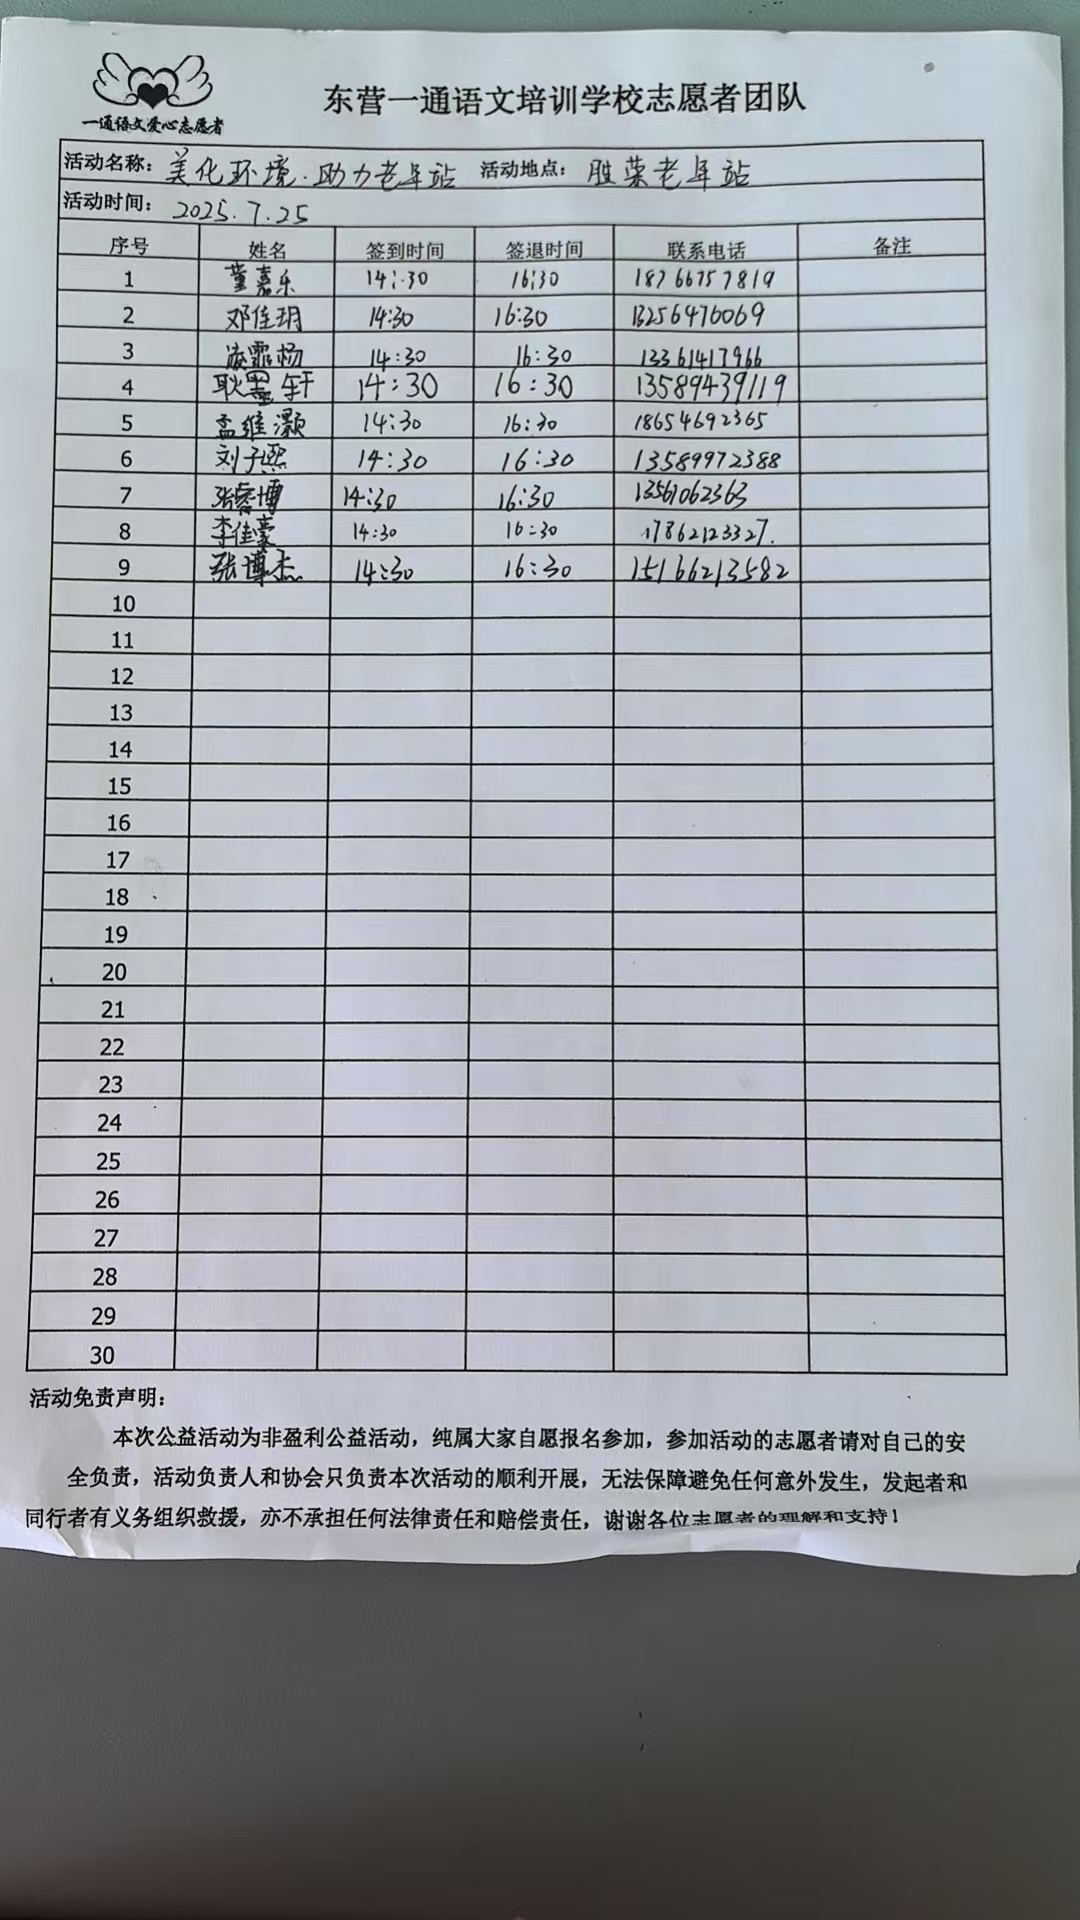 一通语文爱心志愿者
东营一通语文培训学校志愿者团队
活动名称：美化环境·助力老年站 活动地点：胜荣老年站
活动时间：2025.7.25
序号 姓名 签到时间 签退时间 联系电话 备注
1 董嘉乐 14:30 16:30 18766757819
2 邓佳玥 14:30 16:30 13256476069
3 凌霏杨 14:30 16:30 13361417966
4 耿墨轩 14:30 16:30 13589439119
5 孟维灏 14:30 16:30 18654692365
6 刘子熙 14:30 16:30 13589972388
7 张睿博 14:30 16:30 13561062363
8 李佳豪 14:30 16:30 17862123327.
9 张博杰 14:30 16:30 15166213582
10
11
12
13
14
15
16
17
18
19
20
21
22
23
24
25
26
27
28
29
30
活动免责声明：
本次公益活动为非盈利公益活动，纯属大家自愿报名参加，参加活动的志愿者请对自己的安
全负责，活动负责人和协会只负责本次活动的顺利开展，无法保障避免任何意外发生，发起者和
同行者有义务组织救援，亦不承担任何法律责任和赔偿责任，谢谢各位志愿者的理解和支持！